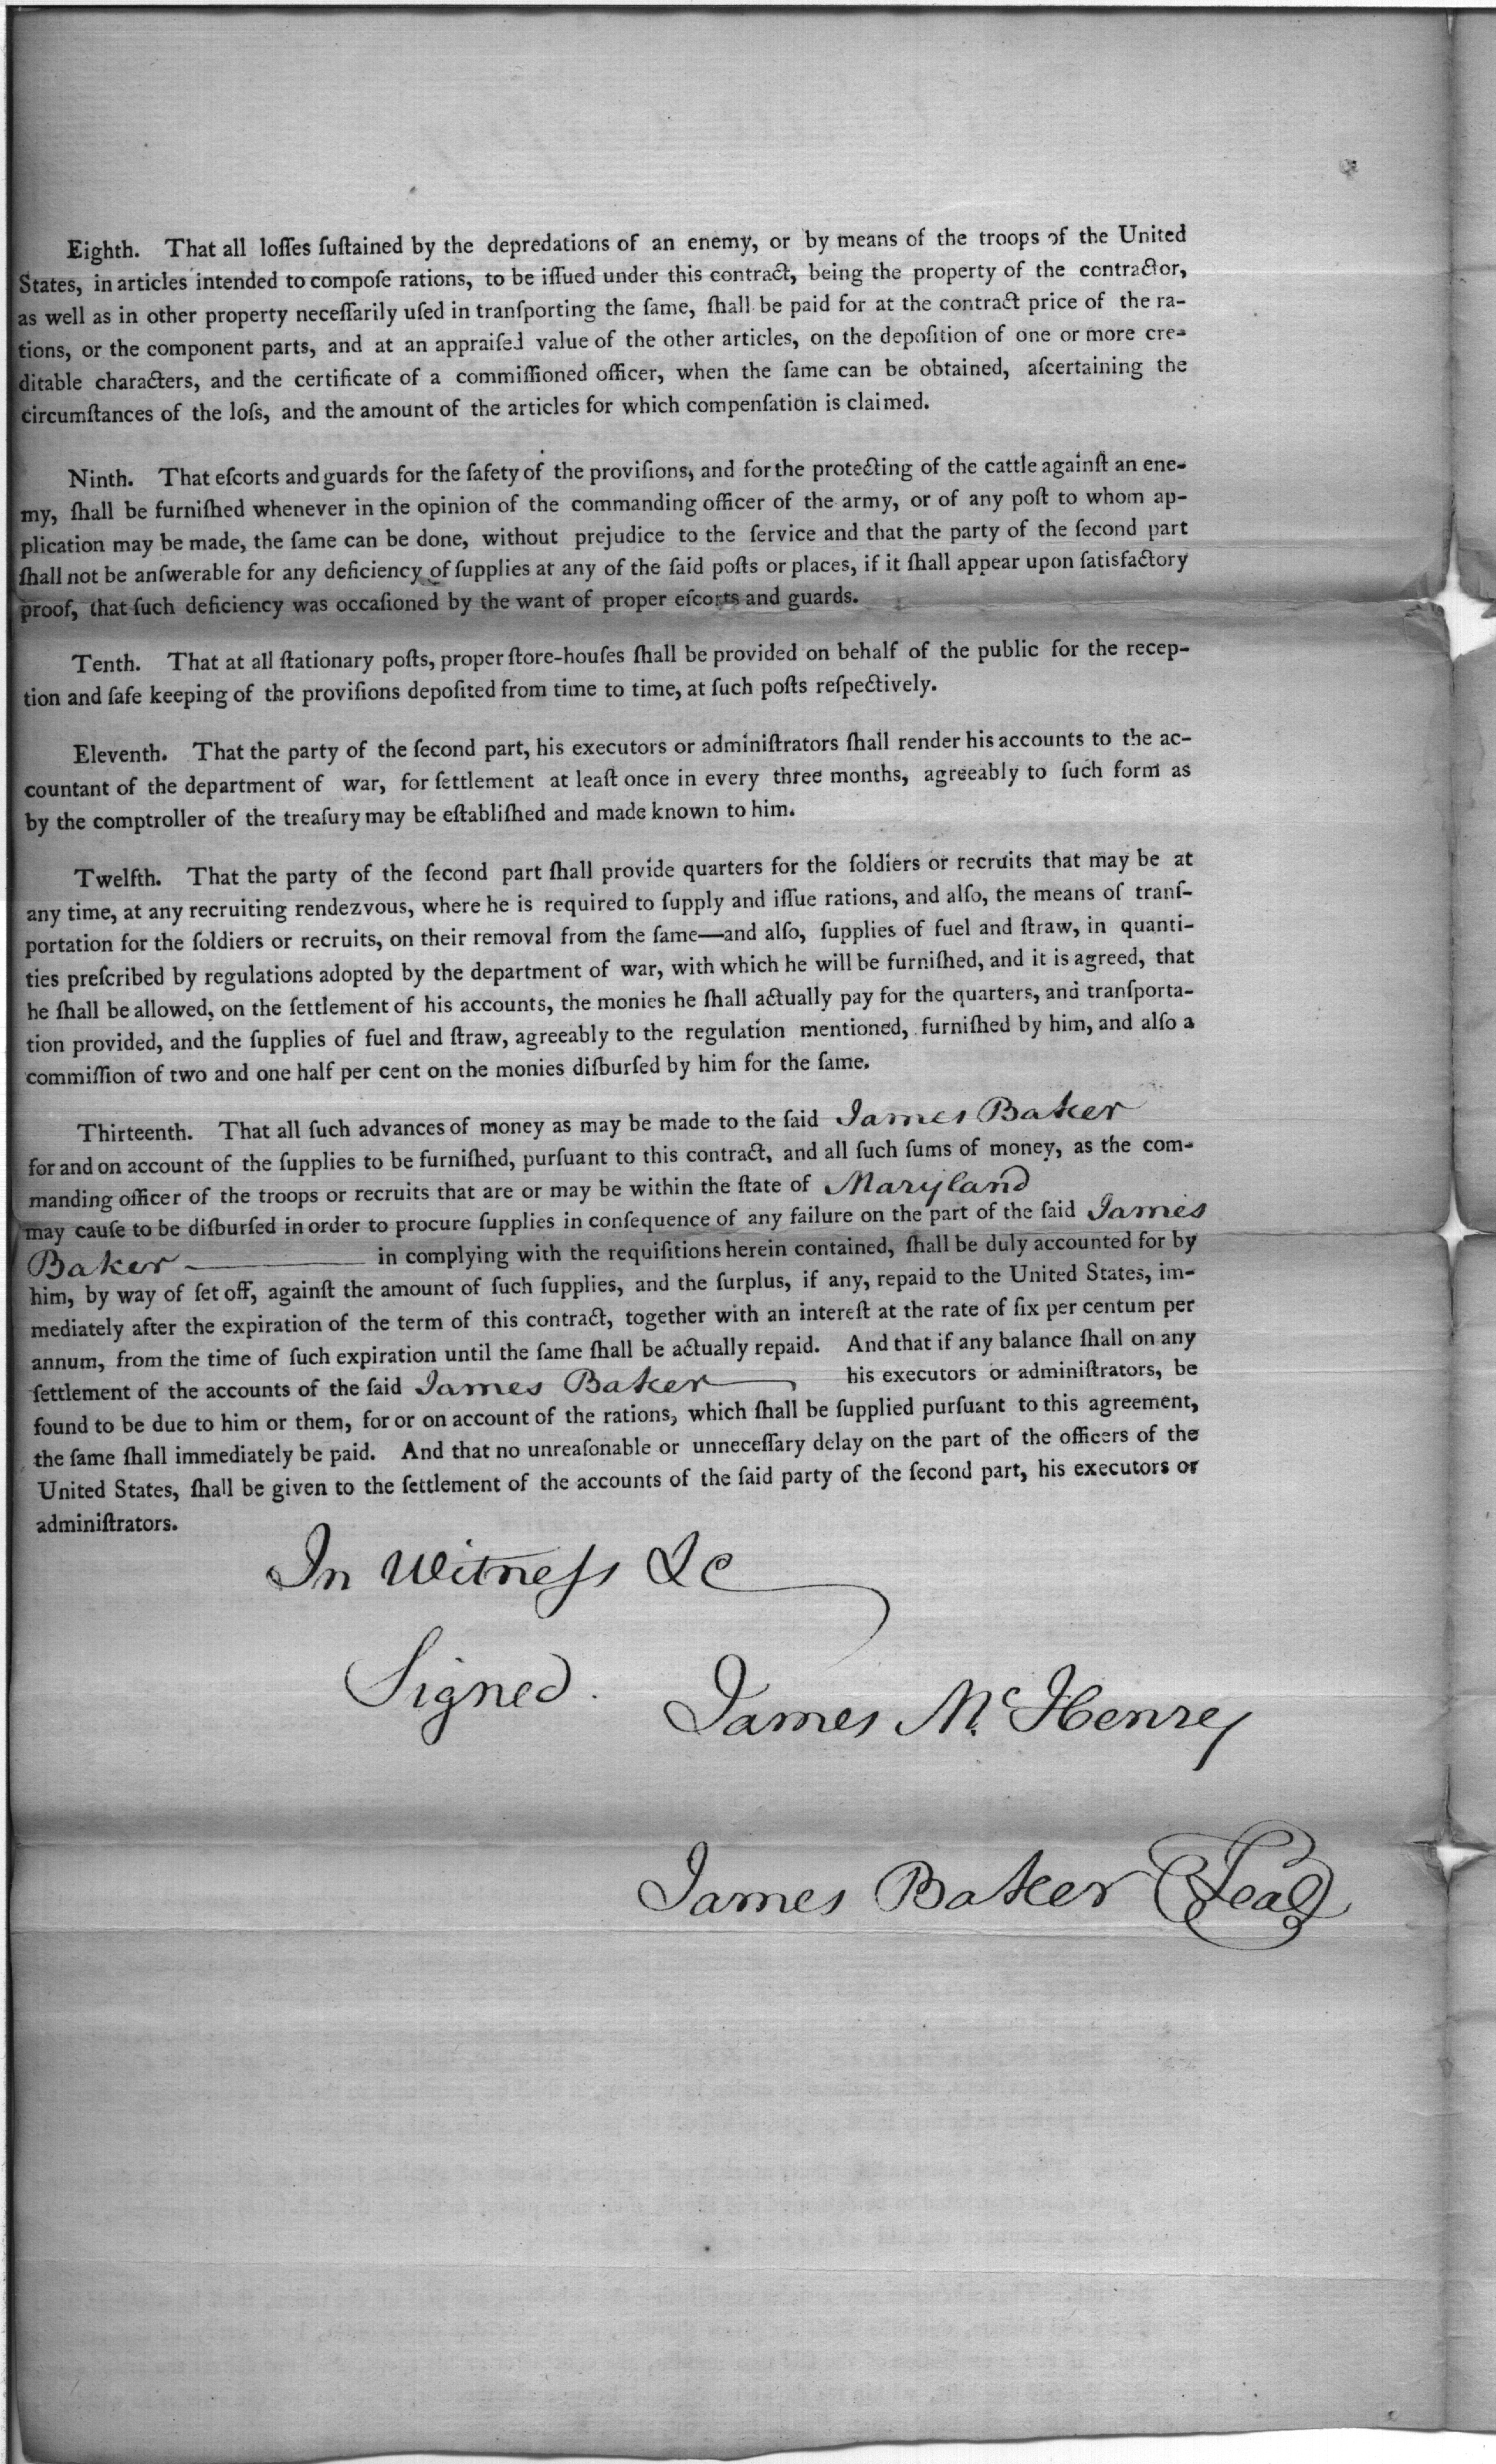 Eighth. That all loſſes ſuſtained by the depredations of an enemy, or by means of the troops of the United
States, in articles intended to compoſe rations, to be iſſued under this contract, being the property of the contractor,
as well as in other property neceſſarily uſed in tranſporting the ſame, ſhall be paid for at the contract price of the ra-
tions, or the component parts, and at an appraiſed value of the other articles, on the depoſition of one or more cre-
ditable characters, and the certificate of a commiſſioned officer, when the ſame can be obtained, aſcertaining the
circumſtances of the loſs, and the amount of the articles for which compenſation is claimed.
Ninth. That eſcorts and guards for the ſafety of the proviſions, and for the protecting of the cattle againſt an ene-
my, ſhall be furniſhed whenever in the opinion of the commanding officer of the army, or of any poſt to whom ap-
plication may be made, the ſame can be done, without prejudice to the ſervice and that the party of the ſecond part
ſhall not be anſwerable for any deficiency of ſupplies at any of the ſaid poſts or places, if it ſhall appear upon ſatisfactory
proof, that ſuch deficiency was occaſioned by the want of proper eſcorts and guards.
Tenth. That at all ſtationary poſts, proper ſtore-houſes ſhall be provided on behalf of the public for the recep-
tion and ſafe keeping of the proviſions depoſited from time to time, at ſuch poſts reſpectively.
Eleventh. That the party of the ſecond part, his executors or adminiſtrators ſhall render his accounts to the ac-
countant of the department of war, for ſettlement at leaſt once in every three months, agreeably to ſuch form as
by the comptroller of the treaſury may be eſtabliſhed and made known to him.
Twelfth. That the party of the ſecond part ſhall provide quarters for the ſoldiers or recruits that may be at
any time, at any recruiting rendezvous, where he is required to ſupply and iſſue rations, and alſo, the means of tranſ-
portation for the ſoldiers or recruits, on their removal from the ſame—and alſo, ſupplies of fuel and ſtraw, in quanti-
ties preſcribed by regulations adopted by the department of war, with which he will be furniſhed, and it is agreed, that
he ſhall be allowed, on the ſettlement of his accounts, the monies he ſhall actually pay for the quarters, and tranſporta-
tion provided, and the ſupplies of fuel and ſtraw, agreeably to the regulation mentioned, furniſhed by him, and alſo a
commiſſion of two and one half per cent on the monies diſburſed by him for the ſame.
Thirteenth. That all ſuch advances of money as may be made to the ſaid James Baker
for and on account of the ſupplies to be furniſhed, purſuant to this contract, and all ſuch ſums of money, as the com-
manding officer of the troops or recruits that are or may be within the ſtate of Maryland
may cauſe to be diſburſed in order to procure ſupplies in conſequence of any failure on the part of the ſaid James
Baker ——— in complying with the requiſitions herein contained, ſhall be duly accounted for by
him, by way of ſet off, againſt the amount of ſuch ſupplies, and the ſurplus, if any, repaid to the United States, im-
mediately after the expiration of the term of this contract, together with an intereſt at the rate of ſix per centum per
annum, from the time of ſuch expiration until the ſame ſhall be actually repaid. And that if any balance ſhall on any
ſettlement of the accounts of the ſaid James Baker — his executors or adminiſtrators, be
found to be due to him or them, for or on account of the rations, which ſhall be ſupplied purſuant to this agreement,
the ſame ſhall immediately be paid. And that no unreaſonable or unneceſſary delay on the part of the officers of the
United States, ſhall be given to the ſettlement of the accounts of the ſaid party of the ſecond part, his executors or
adminiſtrators.
In Witneſs &c
Signed. James McHenry
James Baker Seal